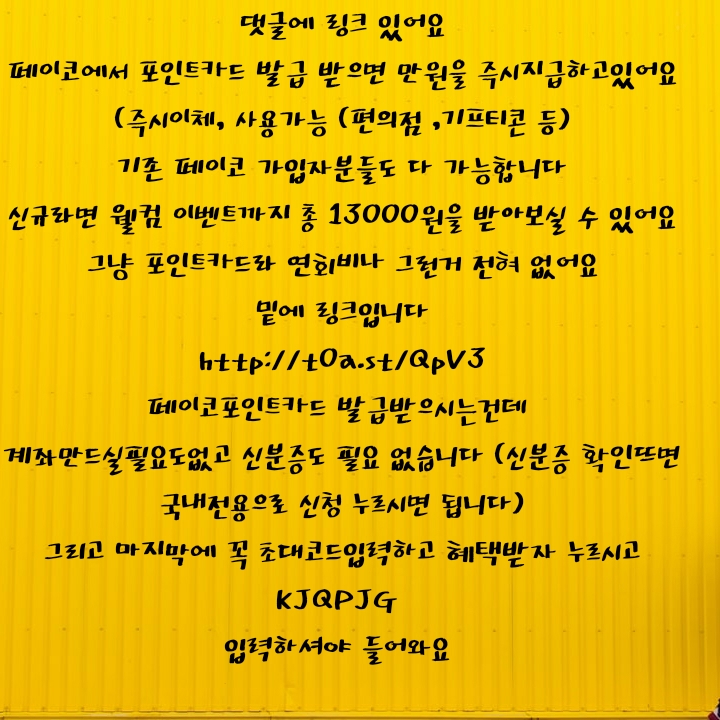 댓글에 링크 있어요
페이코에서 포인트카드 발급 받으면 만원을 즉시지급하고있어요
(즉시이체, 사용가능 (편의점 ,기프티콘 등)
기존 페이코 가입자분들도 다 가능합니다
신규라면 웰컴 이벤트까지 총 13000원을 받아보실 수 있어요
그냥 포인트카드라 연회비나 그런거 전혀 없어요
밑에 링크입니다
http://tOa.st/QpV3
페이코포인트카드 발급받으시는건데
계좌만드실필요도없고 신분증도 필요 없습니다 (신분증 확인뜨면
국내전용으로 신청 누르시면 됩니다)
그리고 마지막에 꼭 초대코드입력하고 혜택받자 누르시고
KJQPJG
입력하셔야 들어와요